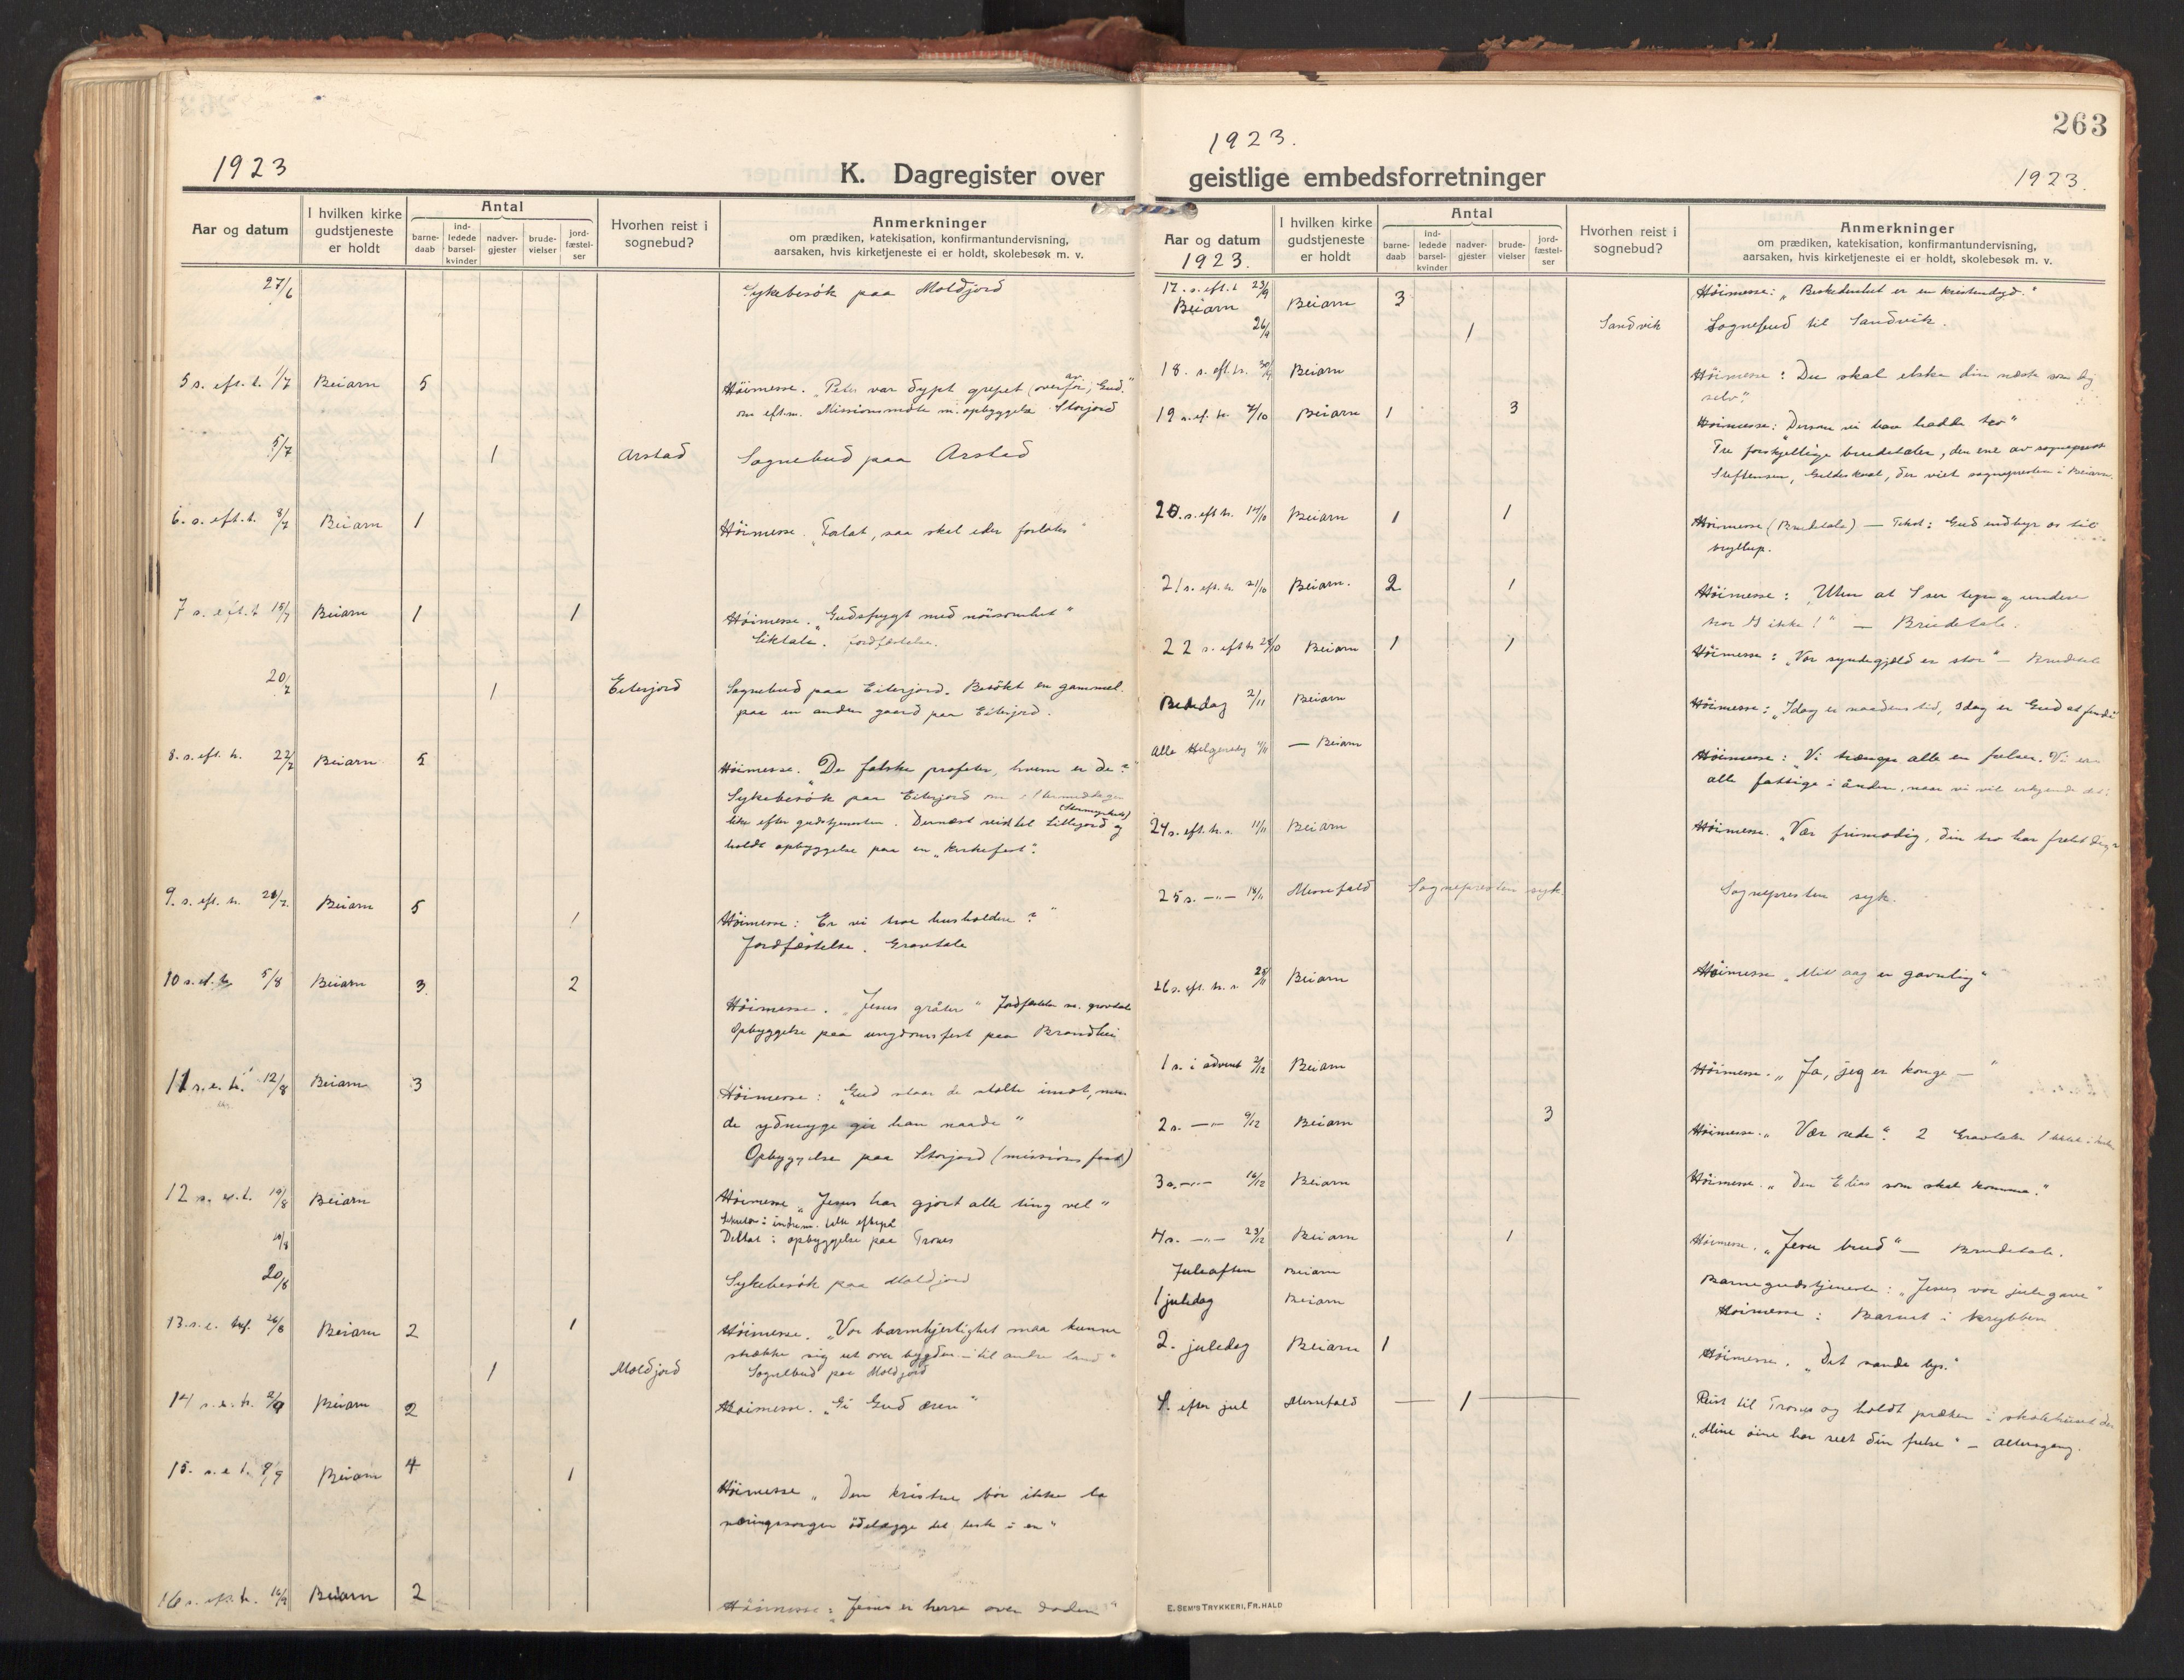 1923
K. Dagregister over
Aar og datum
I hvilken kirke gudstjeneste er holdt
Antal
barne-daab
ind-ledede barsel-kvinder
nadver-gjester
brude-vielser
jord-fæstel-ser
Hvorhen reist i sognebud?
Anmerkninger
om prædiken, katekisation, konfirmantundervisning,
aarsaken, hvis kirketjeneste ei er holdt, skolebesøk m. v.
27/6 Sykebesök paa Moldjord
5 s. eft. t. 1/7 Beiarn 5 Höimesse. "Peter var dypt grepet (overfor) av Gud."
om eft.m. Missionsmöte m. opbyggelse Storjord
5/7 1 Arstad Sognebud paa Arstad
6. s. eft. t. 8/7 Beiarn 1 Höimesse. "Forlat, saa skal eder forlates"
7 s. eft. t 15/7 Beiarn 1 1 Höimesse. "Gudsfrygt med nöisomhet"
Liktale. Jordfæstelse.
20/7 1 Eiterjord Sognebud paa Eiterjord. Besökt en gammel
paa en anden gaard paa Eiterjord.
8. s. eft. tr. 22/7 Beiarn 5 Höimesse. "De falske profeter, hvem er de?"
Sykebesök paa Eiterjord om
like efter gudstjenesten. Dernæst reist til Lillejord og
holdt opbyggelse paa en "kirkefest".
9. s. eft. tr. 29/7 Beiarn 5 1 Höimesse: "Er vi troe husholdere?"
Jordfæstelse. Gravtale
10 s. ef. tr. 5/8 Beiarn 3 2 Höimesse. "Jesus gråter" Jordfæstelse m. gravtale
Opbyggelse paa ungdomsfest paa Brandhei
11 s. e. tr. 12/8 Beiarn 3 Höimesse: "Gud staar de stolte imot, men
de ydmyge gir han naade"
Opbyggelse paa Storjord (missionsfest)
12 s. e. t. 19/8 Beiarn Höimesse "Jesus har gjort alle ting vel"
19/8 Deltat i opbyggelse paa Trones
20/8 Sykebesök paa Moldjord
13. s. e. tref. 26/8 Beiarn 2 1 Höimesse. "Vor barmhjertighet maa kunne
strække sig ut over bygden – til andre land"
1 Moldjord Sognebud paa Moldjord
14 s. e. tr. 2/9 Beiarn 2 Höimesse. "Gi Gud æren"
15. s. e t. 9/9 Beiarn 4 1 Höimesse "Den kristne bör ikke la
næringssorgen ödelægge det beste i en"
16 s. eft. tr. 16/9 Beiarn 2 Höimesse: "Jesus er herre over döden"
263
1923.
geistlige embedsforretninger
1923.
Aar og datum
1923.
I hvilken kirke gudstjeneste er holdt
Antal
barne-daab
ind-ledede barsel-kvinder
nadver-gjester
brude-vielser
jord-fæstel-ser
Hvorhen reist i sognebud?
Anmerkninger
om prædiken, katekisation, konfirmantundervisning,
aarsaken, hvis kirketjeneste ei er holdt, skolebesøk m. v.
17. s. eft. t 23/9 Beiarn Beiarn 3 Höimesse: "Beskedenhet er en kristendyd."
26/9 1 Sandvik Sognebud til Sandvik.
18. s. eft. tr. 30/9 Beiarn Höimesse: Du skal elske din næste som dig
selv."
19 s. ef. tr. 7/10 Beiarn 1 3 Höimesse: "Dersom vi bare hadde tro"
Tre forskjellige brudetaler, den ene av sogneprest
Steffensen, Gildeskaal, der viet sognepresten i Beiarn.
20. s. eft tr. 14/10 Beiarn 1 1 Höimesse (Brudetale) — Tekst: Gud indbyr os til
bryllup.
21 s. eft. tr. 21/10 Beiarn. 2 1 Höimesse: "Uten at I ser tegn og undere
tror I ikke!" — Brudetale.
22 s. eft tr 28/10 Beiarn 1 1 Höimesse: "Vor syndegjæld er stor" — Brudetale
Bededag 2/11 Beiarn Höimesse: "Idag er naadens tid, idag er Gud at finde"
Alle Helgensdag 4/11 — Beiarn Höimesse: "Vi trænger alle en frelser. Vi er
alle fattige i ånden, naar vi vil erkjende det."
24 s. eft. tr. s. 11/11 Beiarn Höimesse. "Vær frimodig, din tro har frelst dig"
25 s. —"— 18/11 Messefald Sognepresten syk Sognepresten syk.
26 s. eft. tr. s. 25/11 Beiarn Höimesse "Mit aag er gavnlig"
1 s. i advent 2/12 Beiarn Höimesse. "Ja, jeg er konge —"
2 s. —"— 9/12 Beiarn 3 Höimesse. "Vær rede". 2 Gravtaler
3 s. —"— 16/12 Beiarn Höimesse. "Den Elias som skal komme."
4 s. —"— 23/12 Beiarn 1 Höimesse. "Jesu brud" — Brudetale.
Juleaften Beiarn Barnegudstjeneste: "Jesus vor julegave"
1 juledag Beiarn Höimesse: Barnet i krybben
2. juledag Beiarn 1 Höimesse. "Det sande lys."
S. efter jul Messefald — 1 — Reist til Trones og holdt præken i skolehuset der
"Mine öine har seet din frelse" — Altergang.
E. SEM'S TRYKKERI, FR. HALD